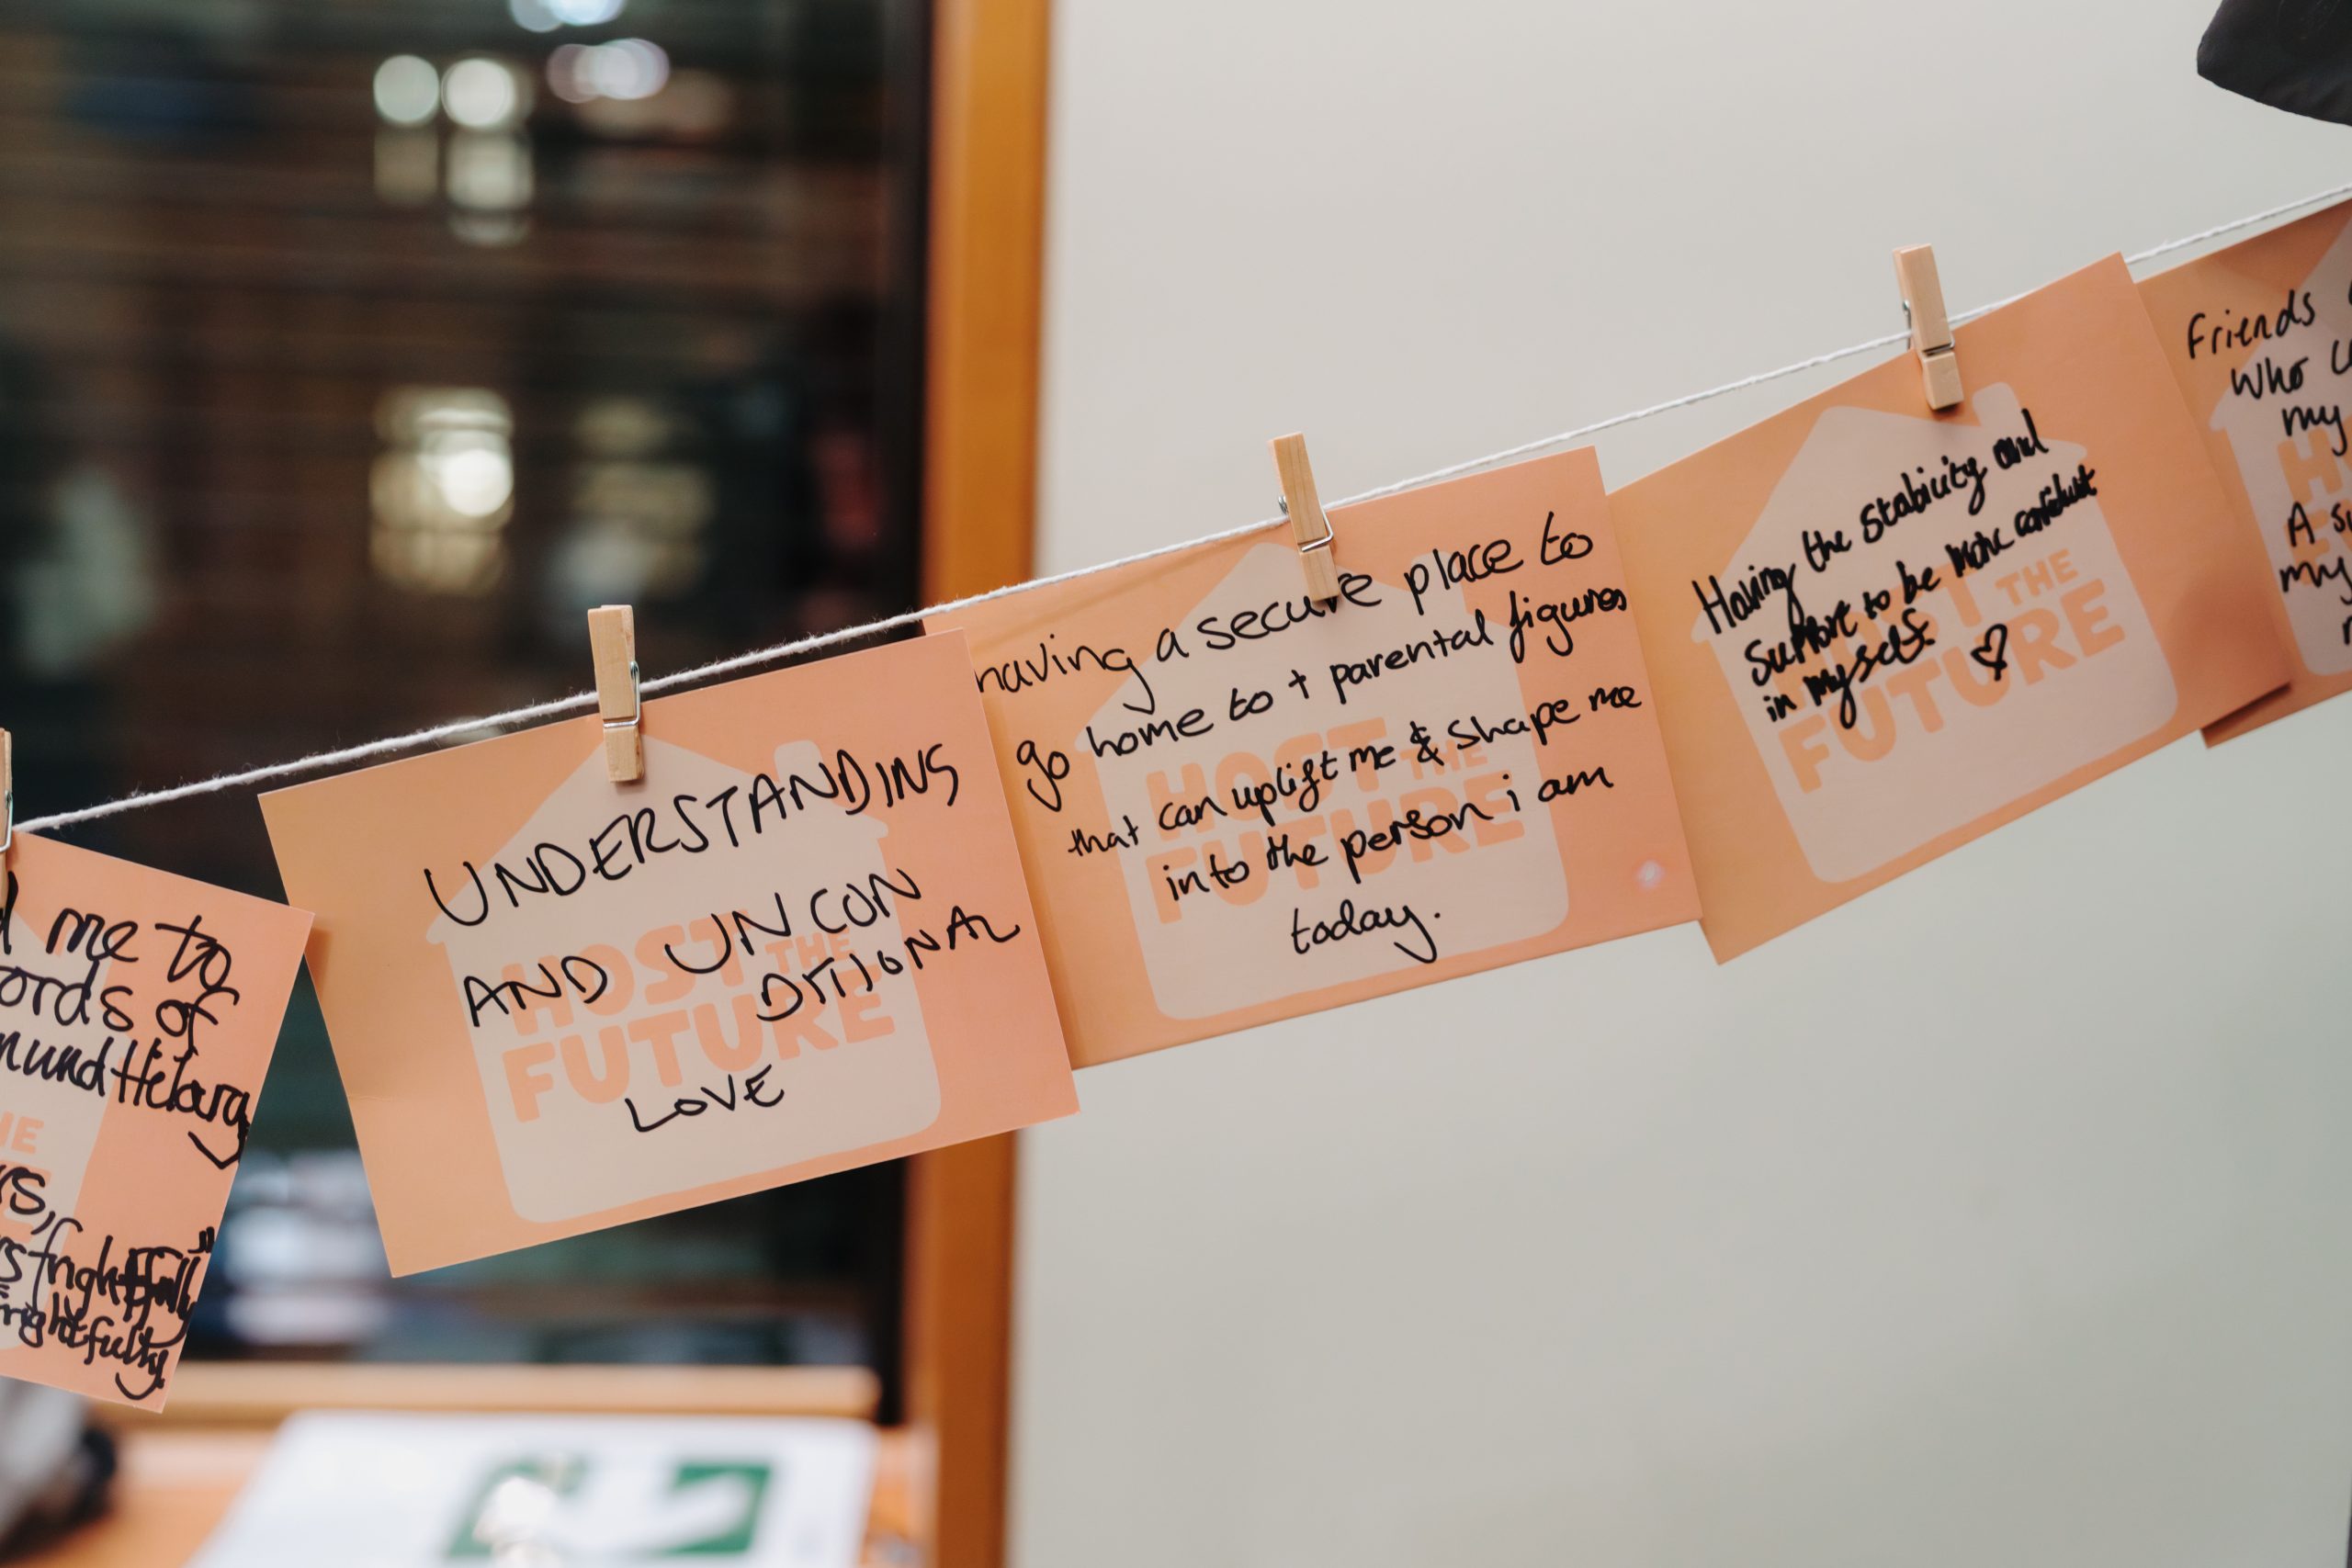 me to
ords of
Hilary
rs,
frightfully
UNDERSTANDING
AND UNCON
DITIONAL
LOVE
HOST THE
FUTURE
having a secure place to
go home to + parental figures
that can uplift me & shape me
into the person i am
today.
HOST THE
FUTURE
Having the stability and
support to be more confident
in myself.
HOST THE
FUTURE
Friends
who
my
A
my